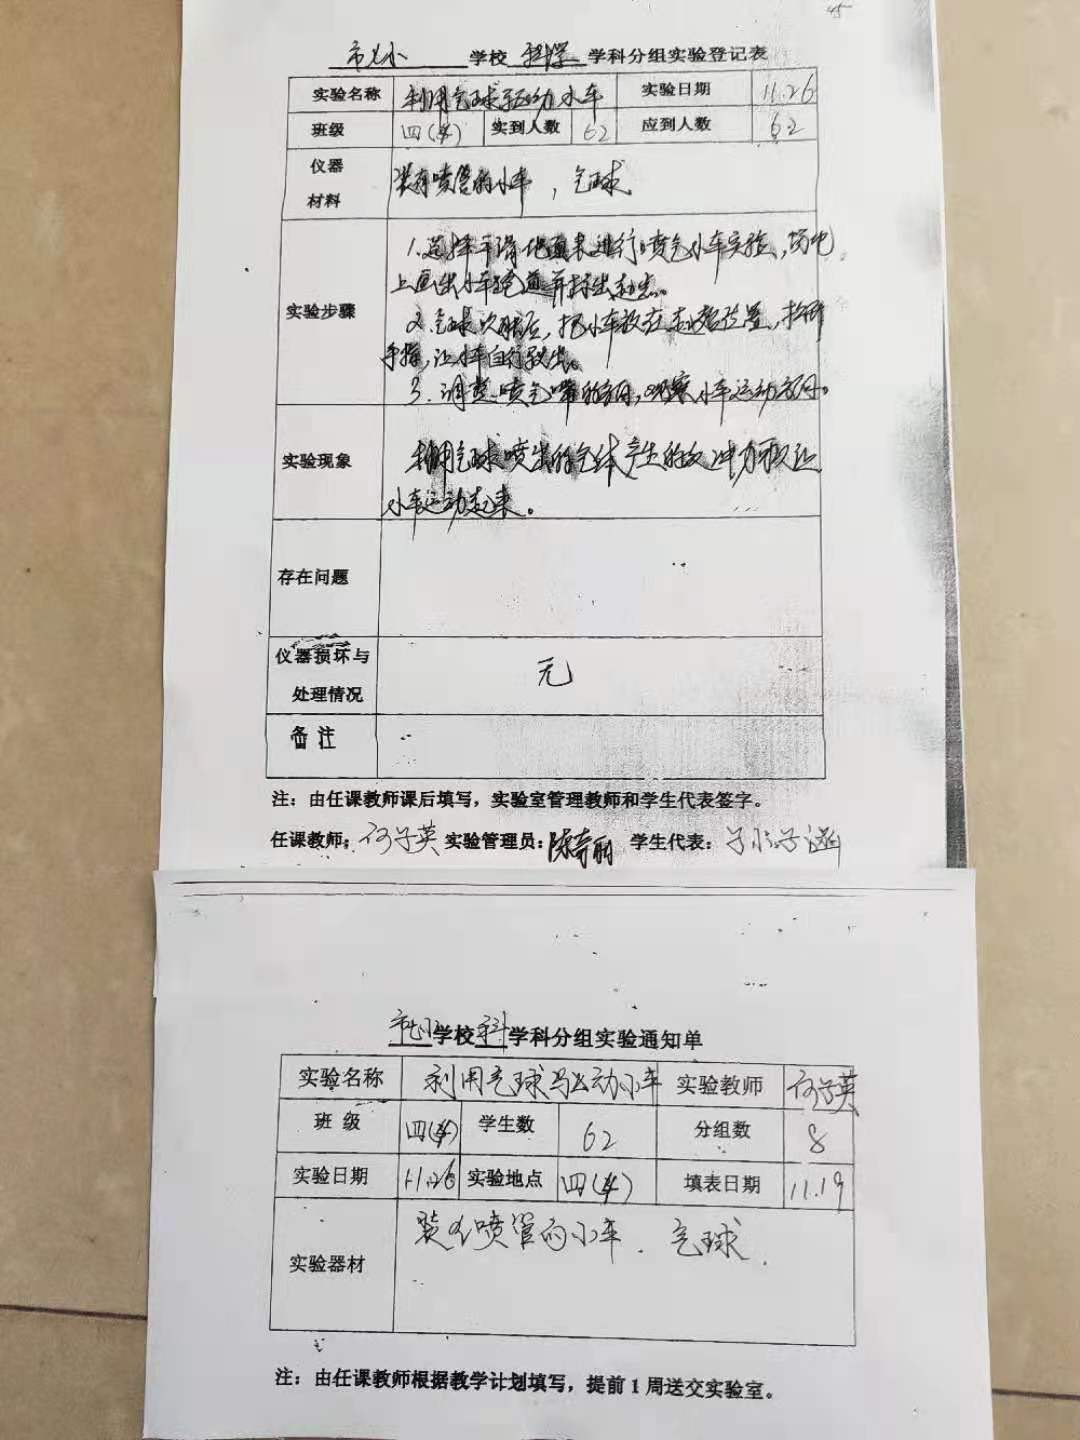 45
学校 科学 学科分组实验登记表
实验名称 利用气球驱动小车 实验日期 11.26
班级 四(4) 实到人数 62 应到人数 62
仪器
材料
装有喷管的小车，气球
实验步骤
1.选择平滑地面来进行喷气小车实验，场地
上画出小车跑道并标出起点。
2.气球吹胀后，把小车放在起始位置，松开
手指，让小车自行驶出。
3.调整喷气嘴的方向，观察小车运动方向。
实验现象
利用气球喷出的气体产生的反冲力可以让
小车运动起来。
存在问题
仪器损坏与
处理情况
无
备注
注：由任课教师课后填写，实验室管理教师和学生代表签字。
任课教师：何子英 实验管理员：陈奇丽 学生代表：
学校 科 学科分组实验通知单
实验名称 利用气球驱动小车 实验教师 何子英
班级 四(4) 学生数 62 分组数 8
实验日期 11.26 实验地点 四(4) 填表日期 11.19
实验器材
装有喷管的小车、气球.
注：由任课教师根据教学计划填写，提前1周送交实验室。